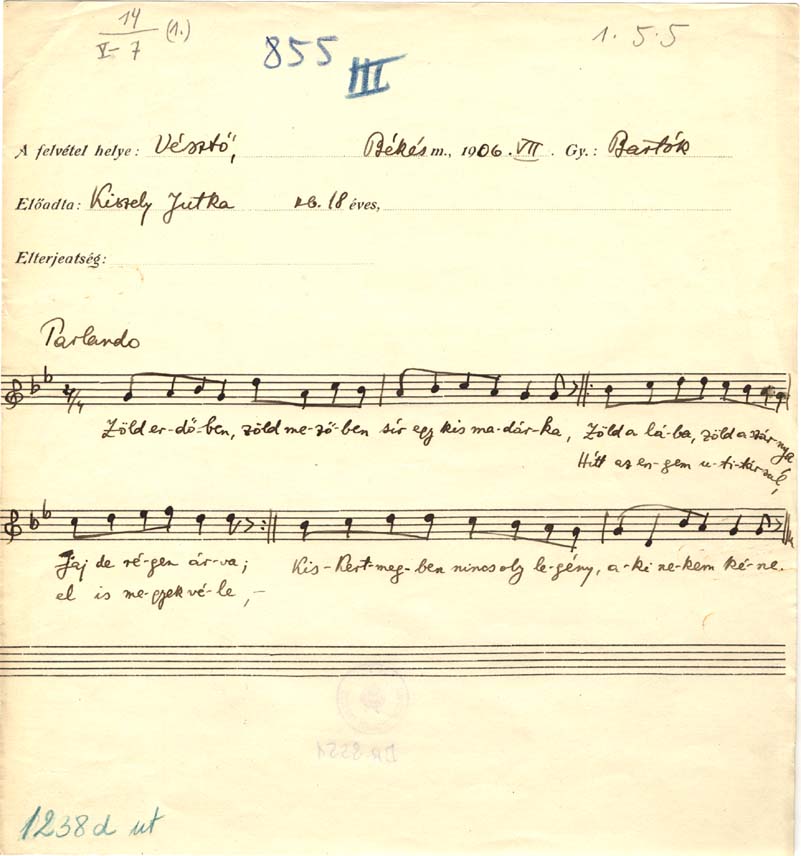 14
V-7 (1.)
855
III
1. 5.5
A felvétel helye: Vésztő, Békés m., 1906. VII. Gy.: Bartók
Előadta: Kiszely Jutka kb. 18 éves,
Elterjeatség:
Parlando
4/4
Zöld er-dő-ben, zöld me-ző-ben sír egy kis ma-dár-ka, Zöld a lá-ba, zöld a szár-nya
Hitt az en-gem u-ti-tár-sul,
Jaj de ré-gen ár-va; Kis-kert-meg-ben nincs oly le-gény, a-ki ne-kem ké-ne.
el is me-gyek vé-le,-
1238d ut